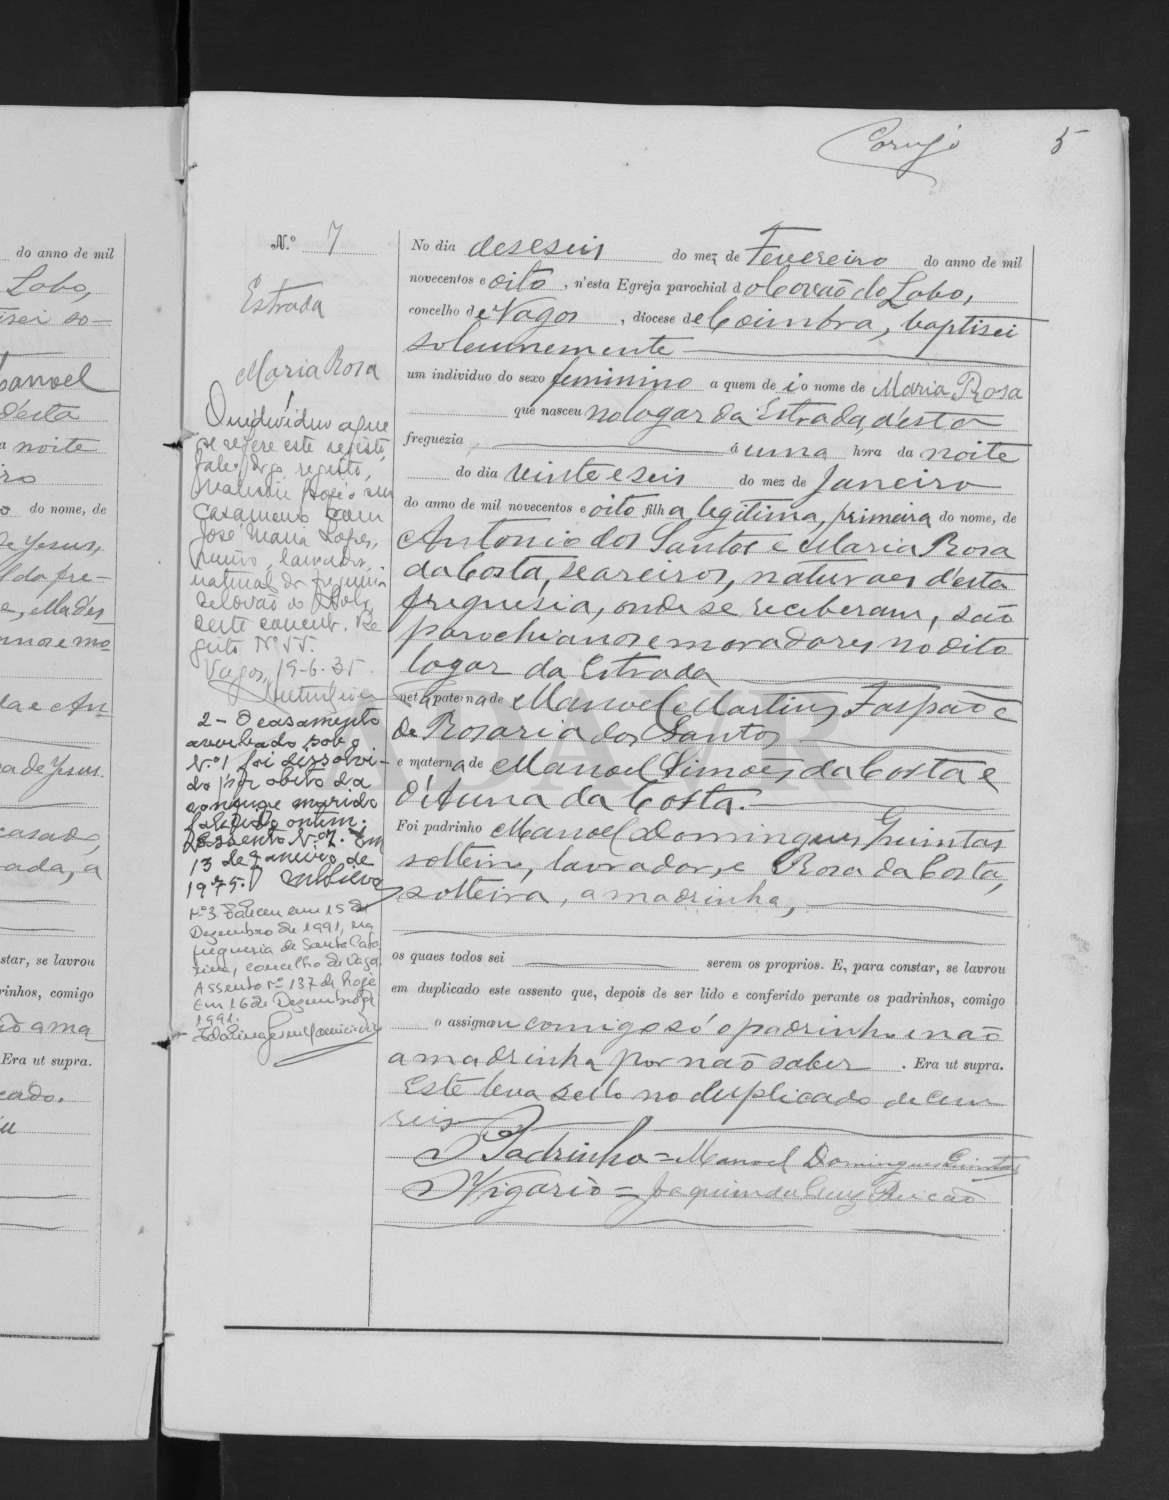 do anno de mil
Lobo,
do nome, de
de Jesus,
casado,
star, se lavrou
rinhos, comigo
Era ut supra.
Corujo
5
N.º 7
Estrada
Maria Rosa
O individuo a que
se refere este registo,
casamento com
José Maria Lopes,
natural da freguesia
Vagos, 19-6-35.
2 - O casamento
averbado sob o
Nº 1 foi dissolvi-
do por obito da
conjuge marido
falecido ontem.
Assento N.º 7. Em
13 de Janeiro de
1975.
Nº 3 Faleceu em 15 de
Dezembro de 1991, na
freguesia de Santa Cata
rina, concelho de Vagos
Assento nº 137 de hoje
Em 16 de Dezembro de
1991.
No dia deseseis do mez de Fevereiro do anno de mil
novecentos e oito, n'esta Egreja parochial do Covão do Lobo,
concelho de Vagos, diocese de Coimbra, baptisei
solemnemente
um individuo do sexo feminino a quem dei o nome de Maria Rosa
que nasceu no logar da Estrada, d'esta
freguezia á uma hora da noite
do dia vinte e seis do mez de Janeiro
do anno de mil novecentos e oito filha legitima, primeira do nome, de
Antonio dos Santos e Maria Rosa
da Costa, seareiros, naturaes d'esta
freguesia, onde se receberam, são
parochianos e moradores no dito
logar da Estrada
neta paterna de Manoel Martins Faspão e
de Rosaria dos Santos
e materna de Manoel Simões da Costa e
d'Anna da Costa.
Foi padrinho Manoel Domingues Quintas
solteiro, lavrador, e Rosa da Costa,
solteira, a madrinha,
os quaes todos sei serem os proprios. E, para constar, se lavrou
em duplicado este assento que, depois de ser lido e conferido perante os padrinhos, comigo
o assignou comigo só o padrinho e não
a madrinha por não saber. Era ut supra.
Este leva sello no duplicado de cem
reis
O Padrinho = Manoel Domingues Quintas
O Vigario = Joaquim da Cruz
ADAVR